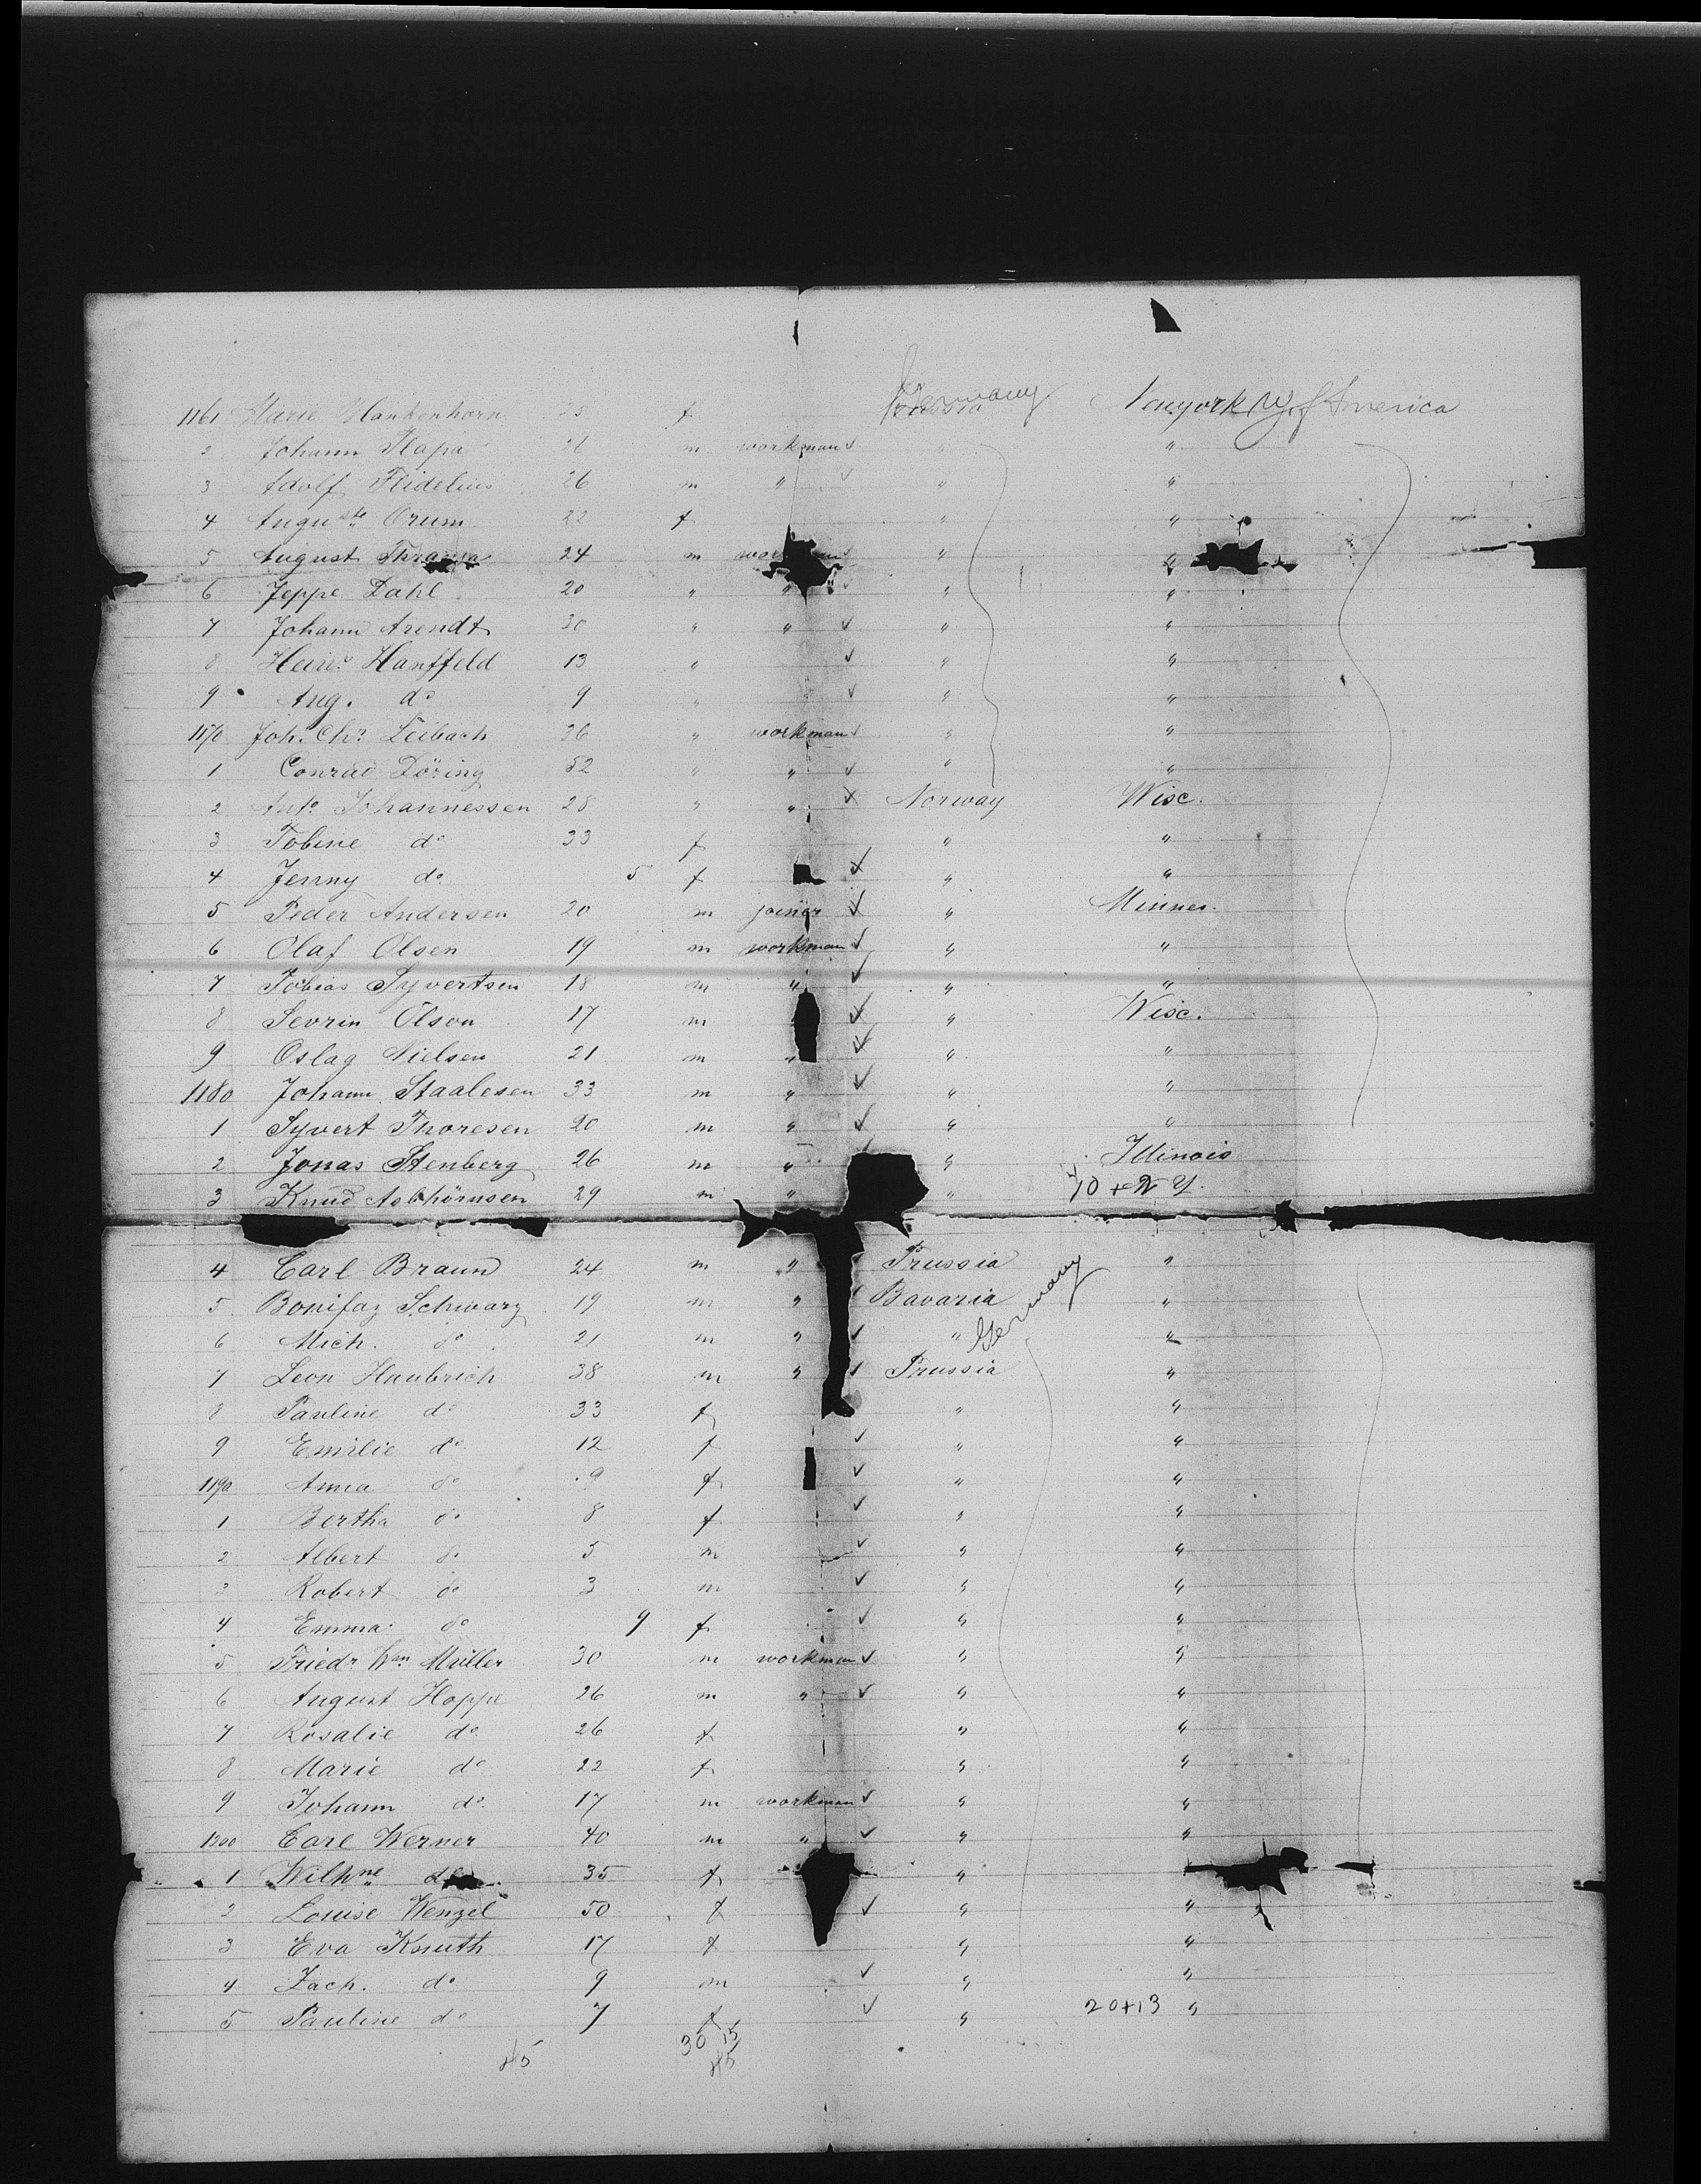 Germany
1161 Marie Mankenhorn 23 f Prussia Newyork N.Y. of America
2 Johann Klapa 26 m workman ✓ " "
3 Adolf Flidelius 26 m " ✓ " "
4 Auguste Orum 22 f " "
5 August 24 m workman ✓ " "
6 Jeppe Dahl 20 " " ✓ " "
7 Johann Arendt 30 " " ✓ " "
8 Heinr. Hanffeld 13 " ✓ " "
9 Aug. do 9 " ✓ " "
1170 Joh. Chr. Leibach 36 " workman ✓ " "
1 Conrad Döring 52 " " ✓ " "
2 Johannessen 28 " " X Norway Wisc.
3 Tobine do 33 f " "
4 Jenny do 5 f X " "
5 Peder Andersen 20 m joiner X " Minnes.
6 Olaf Olsen 19 m workman ✓ " "
7 Tobias Syvertsen 18 m " ✓ " "
8 Sevrin Olson 17 m X " Wisc.
9 Oslag Nielsen 21 m " X " "
1180 Johann Staalesen 33 m " ✓ " "
1 Syvert Thoresen 20 m " ✓ " "
2 Jonas Stenberg 26 m " " Illinois
3 Knud Asbhörnsen 29 m " " N.Y.
4 Carl Braun 24 m " ✓ Prussia "
5 Bonifaz Schwarz 19 m " ✓ Bavaria "
Germany
6 Mich. do 21 m " ✓ " "
7 Leon Haubrich 38 m " ✓ Prussia "
8 Pauline do 33 f " "
9 Emilie do 12 f ✓ " "
1190 Anna do 9 f ✓ " "
1 Bertha do 8 f ✓ " "
2 Albert do 5 m ✓ " "
3 Robert do 3 m ✓ " "
4 Emma do 9 f ✓ " "
5 Friedr. Wm. Müller 30 m workman ✓ " "
6 August Hoppe 26 m " ✓ " "
7 Rosalie do 26 f " "
8 Marie do 22 f " "
9 Johann do 17 m workman ✓ " "
1200 Carl Werner 40 m " ✓ " "
1 Wilhne do 35 f " "
2 Louise Wenzel 50 f ✓ " "
3 Eva Knuth 17 f " "
4 Zach. do 9 m ✓ " "
5 Pauline do 7 f ✓ " 20+13 "
45 30 15
45